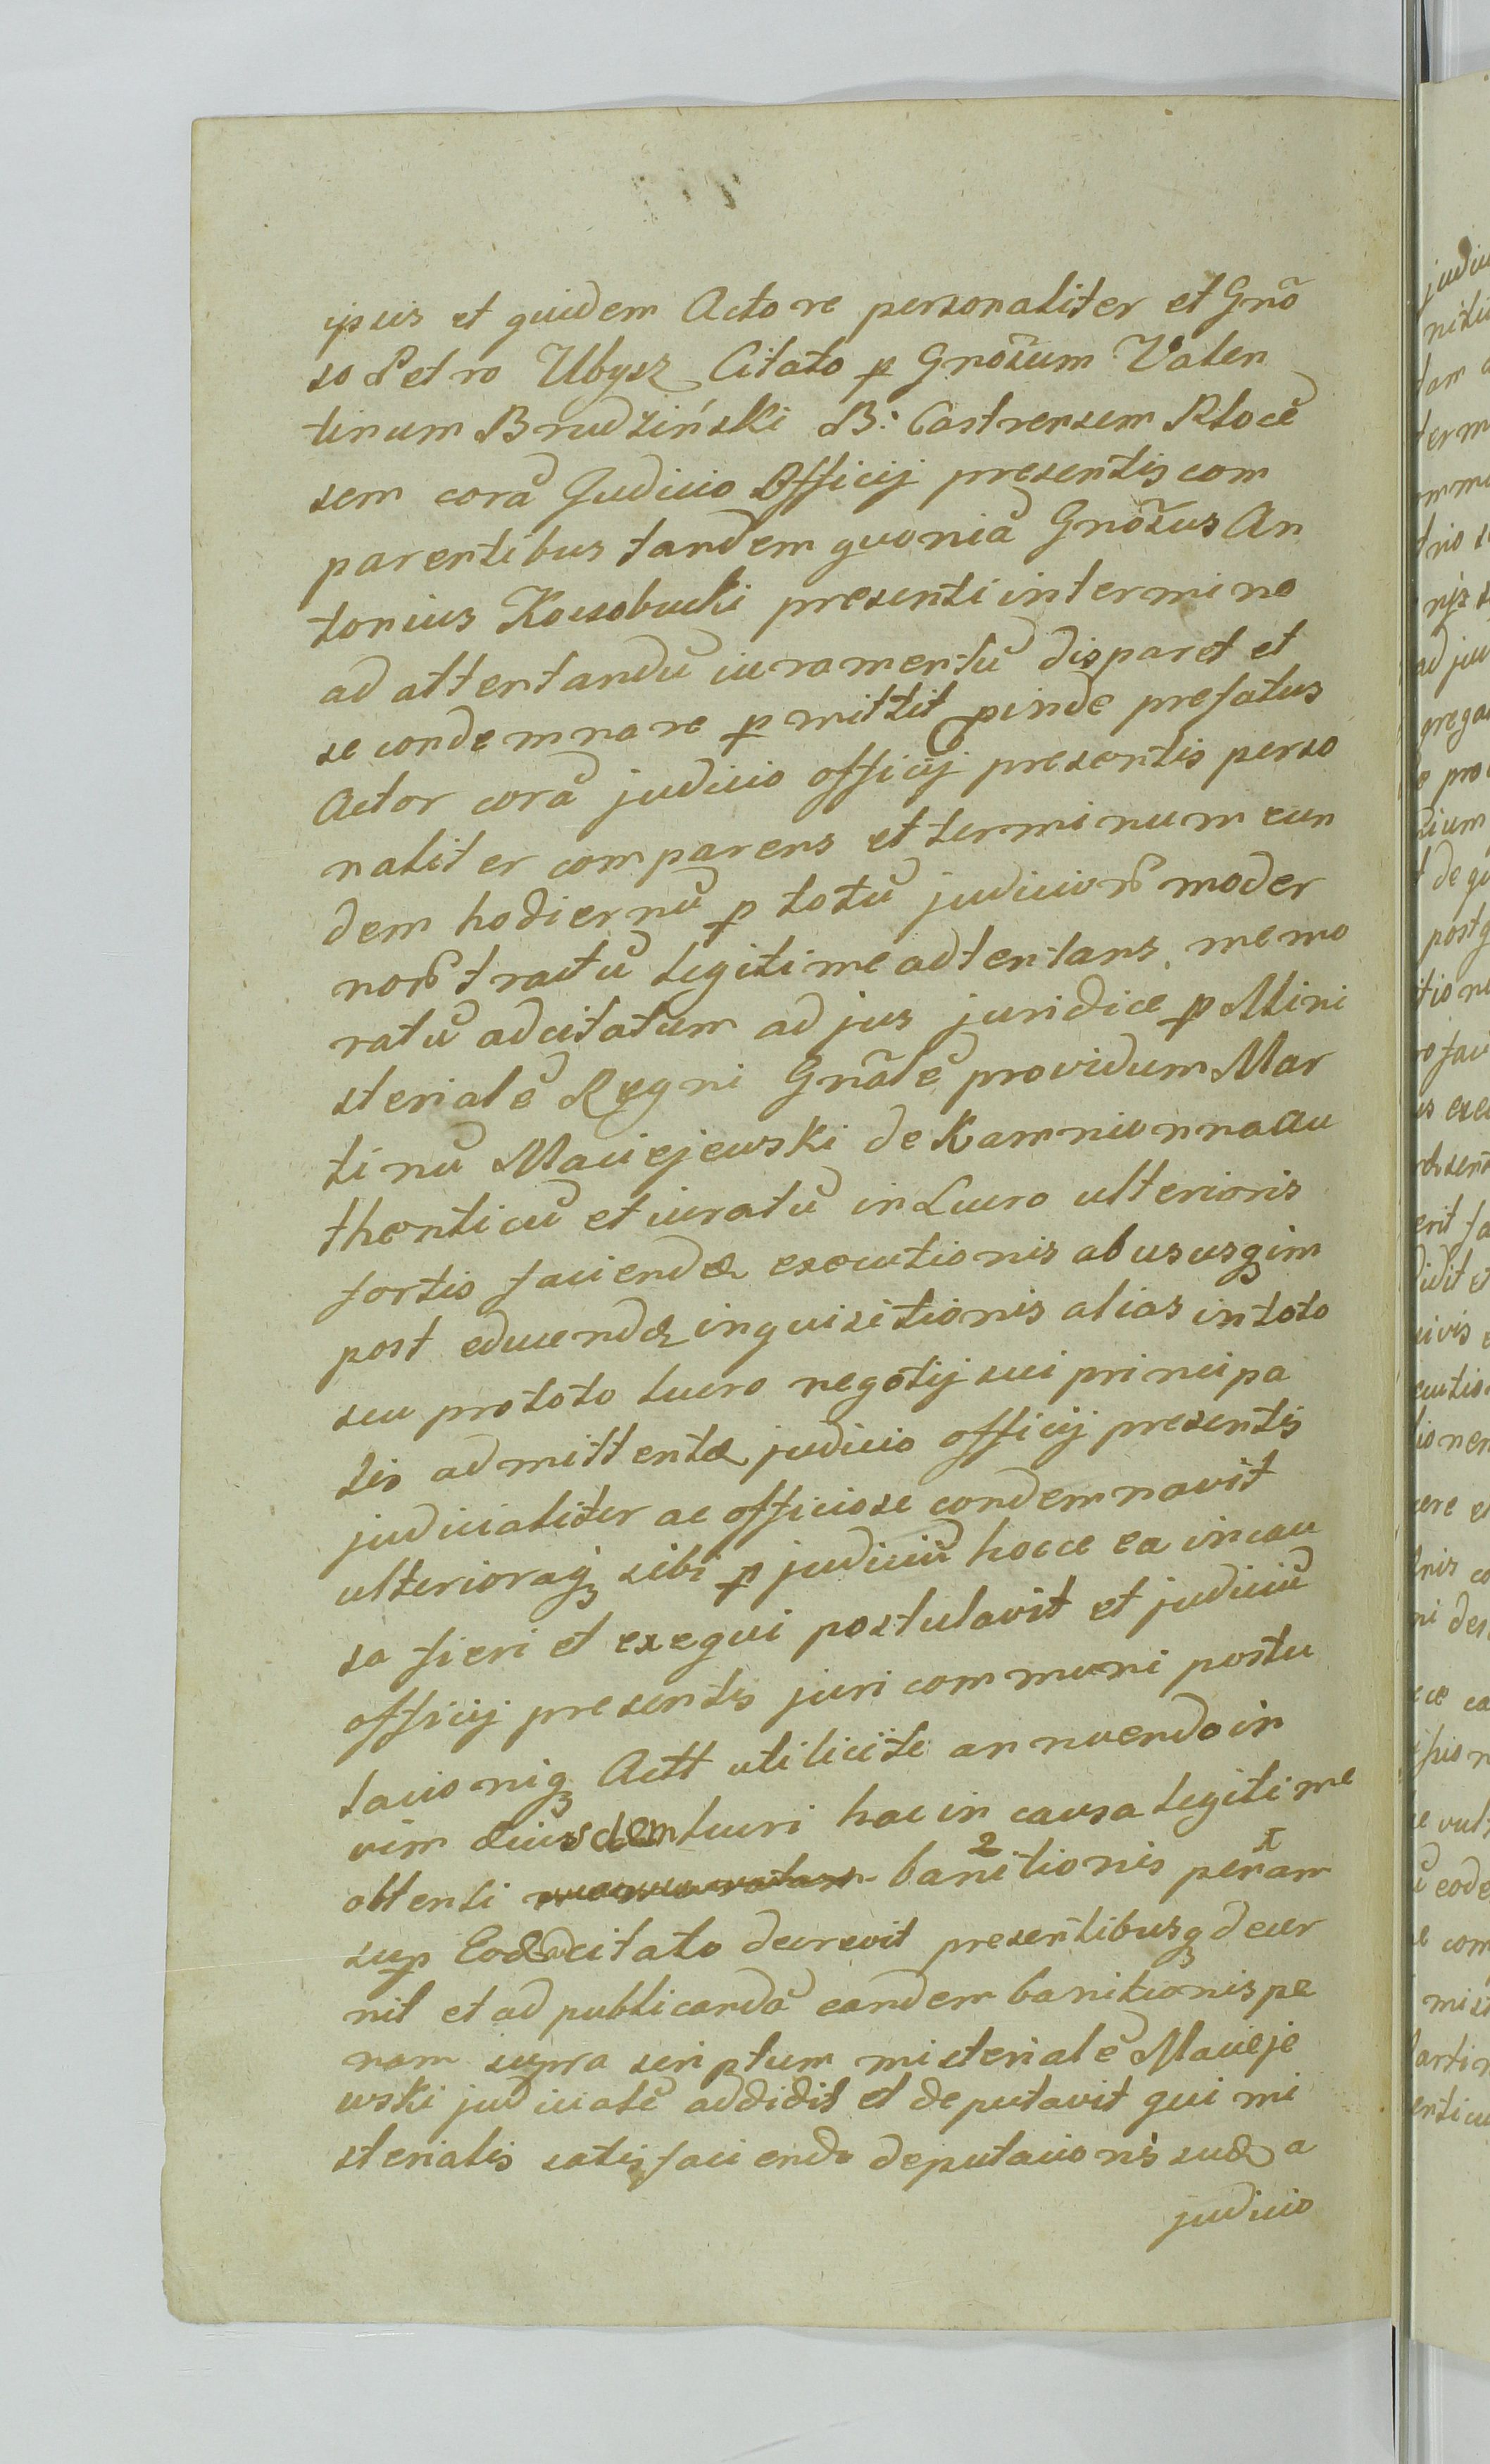 ipsis et quidem Actore personaliter et Gnõ
so Petro Ubysz Citato p Gnõsum Valen
tinum Brudziński B: Castrensem Plocẽ
sem corã Judicio Officij presentis com
parentibus tandem quoniã Gnõsus An
tonius Kossobucki presenti in termino
ad attentandũ iuramentũ disparet et
se condemnare p mittit proinde prefatus
Actor corã judicio officij presentis perso
naliter comparens et terminum eun
dem hodiernũ p totũ judiciorũ moder
norũ tractũ legitime adtentans memo
ratũ adcitatum ad jus juridice p Mini
sterialẽ Regni Gnãlẽ providum Mar
tinũ Maciejewski de Kamnionna au
thenticũ et iuratũ in Lucro ulterioris
fortis faciendæ executionis ab ususqȝ im
post educendæ inquisitionis alias in toto
seu pro toto lucro negotij sui principa
lis admittentæ judicio officij presentis
judicialiter ac officiose condemnavit
ulterioraqȝ sibi p judiciũ hocce ea in cau
sa fieri et exequi postulavit et judiciũ
officij presentis juri communi postu
lacioniqȝ Actt utilicite annuendo in
vim eiusdem lucri hac in causa legitime
obtenti banitionis 2 penam 1
sup Eodẽ citato decrevit presentibusqȝ decer
nit et ad publicandã eandem banitionis pe
nam supra scriptum misterialẽ Macieje
wski judicialẽ addidit et deputavit qui mi
sterialis satisfaciendo deputacionis suæ a
judicio